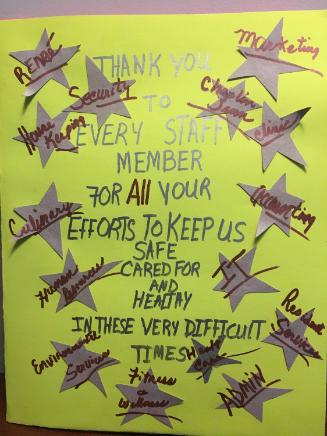 THANK YOU
TO
EVERY STAFF
MEMBER
FOR All YOUR
EFFORTS TO KEEP US
SAFE
CARED FOR
AND
HEALTHY
IN THESE VERY DIFFICULT
TIMES
Rehab
Security
House
Keeping
Culinary
Human
Environmental
Services
Fitness
&
Wellness
Marketing
Clinic
Accounting
I.T.
Resident
Services
Health
Care
ADMIN